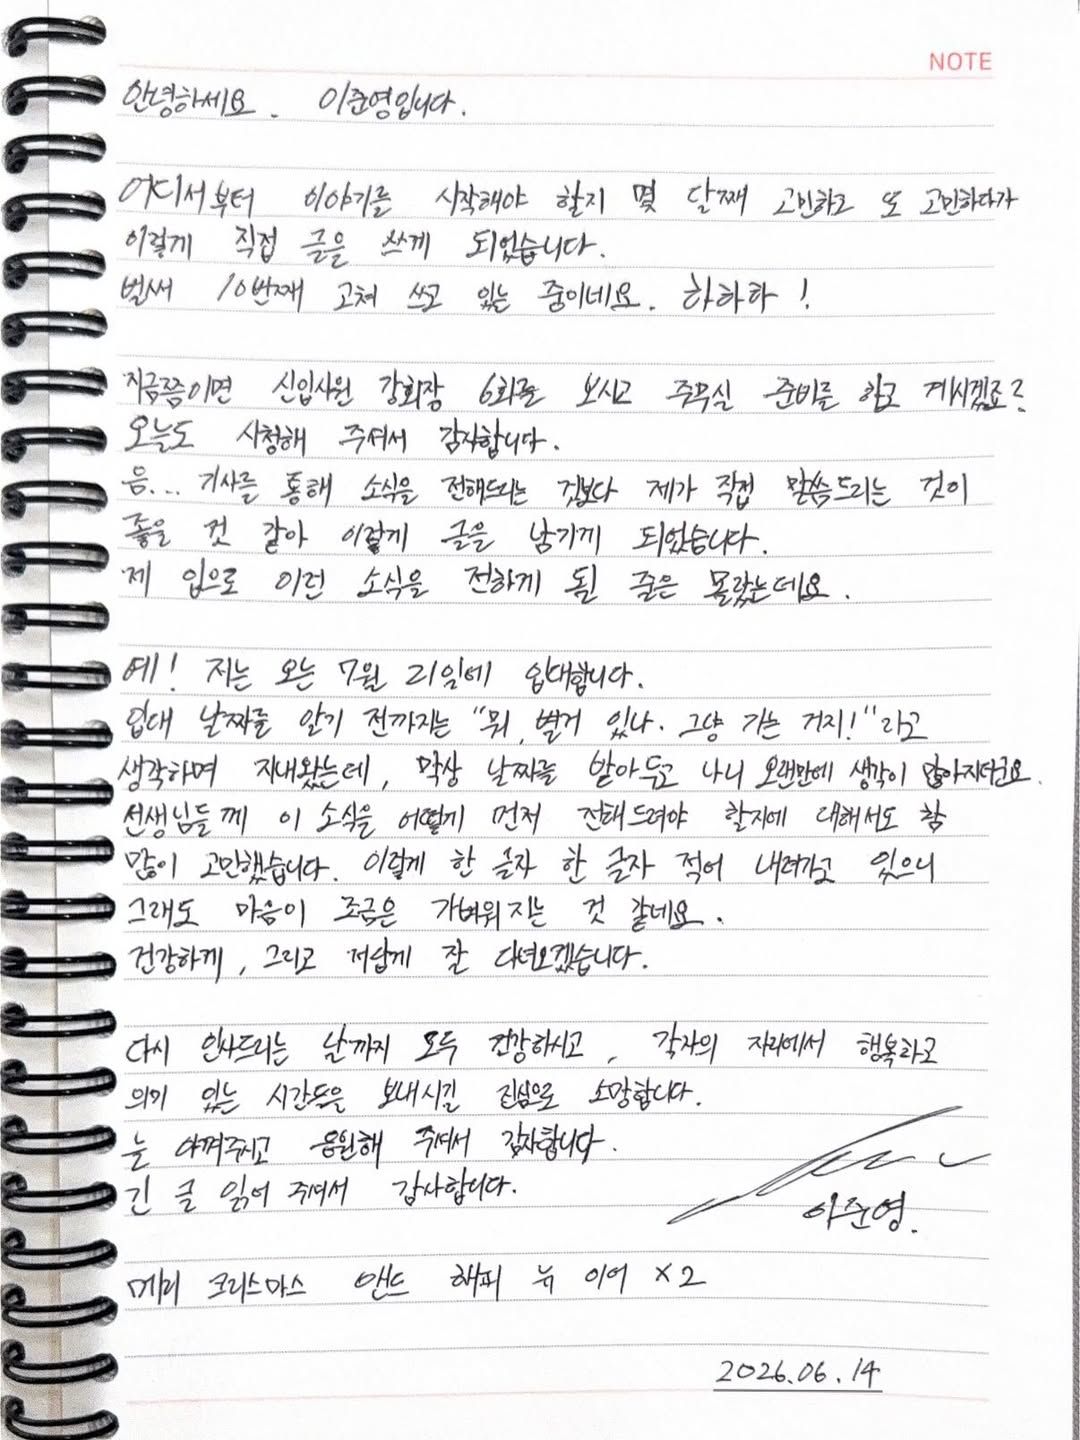 NOTE
안녕하세요. 이준영입니다.
어디서부터 이야기를 시작해야 할지 몇 달째 고민하고 또 고민하다가
이렇게 직접 글을 쓰게 되었습니다.
벌써 10번째 고쳐 쓰고 있는 중이네요. 하하하!
지금쯤이면 신입사원 강회장 6회를 보시고 주무실 준비를 하고 계시겠죠?
오늘도 시청해 주셔서 감사합니다.
음... 기사를 통해 소식을 전해드리는 것보다 제가 직접 말씀드리는 것이
좋을 것 같아 이렇게 글을 남기게 되었습니다.
제 입으로 이런 소식을 전하게 될 줄은 몰랐는데요.
예! 저는 오는 7월 21일에 입대합니다.
입대 날짜를 알기 전까지는 "뭐, 별거 있나. 그냥 가는 거지!"라고
생각하며 지내왔는데, 막상 날짜를 받아두고 나니 오랜만에 생각이 많아지더군요.
선생님들께 이 소식을 어떻게 먼저 전해드려야 할지에 대해서도 참
많이 고민했습니다. 이렇게 한 글자 한 글자 적어 내려가고 있으니
그래도 마음이 조금은 가벼워지는 것 같네요.
건강하게, 그리고 저답게 잘 다녀오겠습니다.
다시 인사드리는 날까지 모두 건강하시고, 각자의 자리에서 행복하고
의미 있는 시간들을 보내시길 진심으로 소망합니다.
늘 아껴주시고 응원해 주셔서 감사합니다.
긴 글 읽어 주셔서 감사합니다.
이준영.
메리 크리스마스 앤드 해피 뉴 이어 x2
2026.06.14